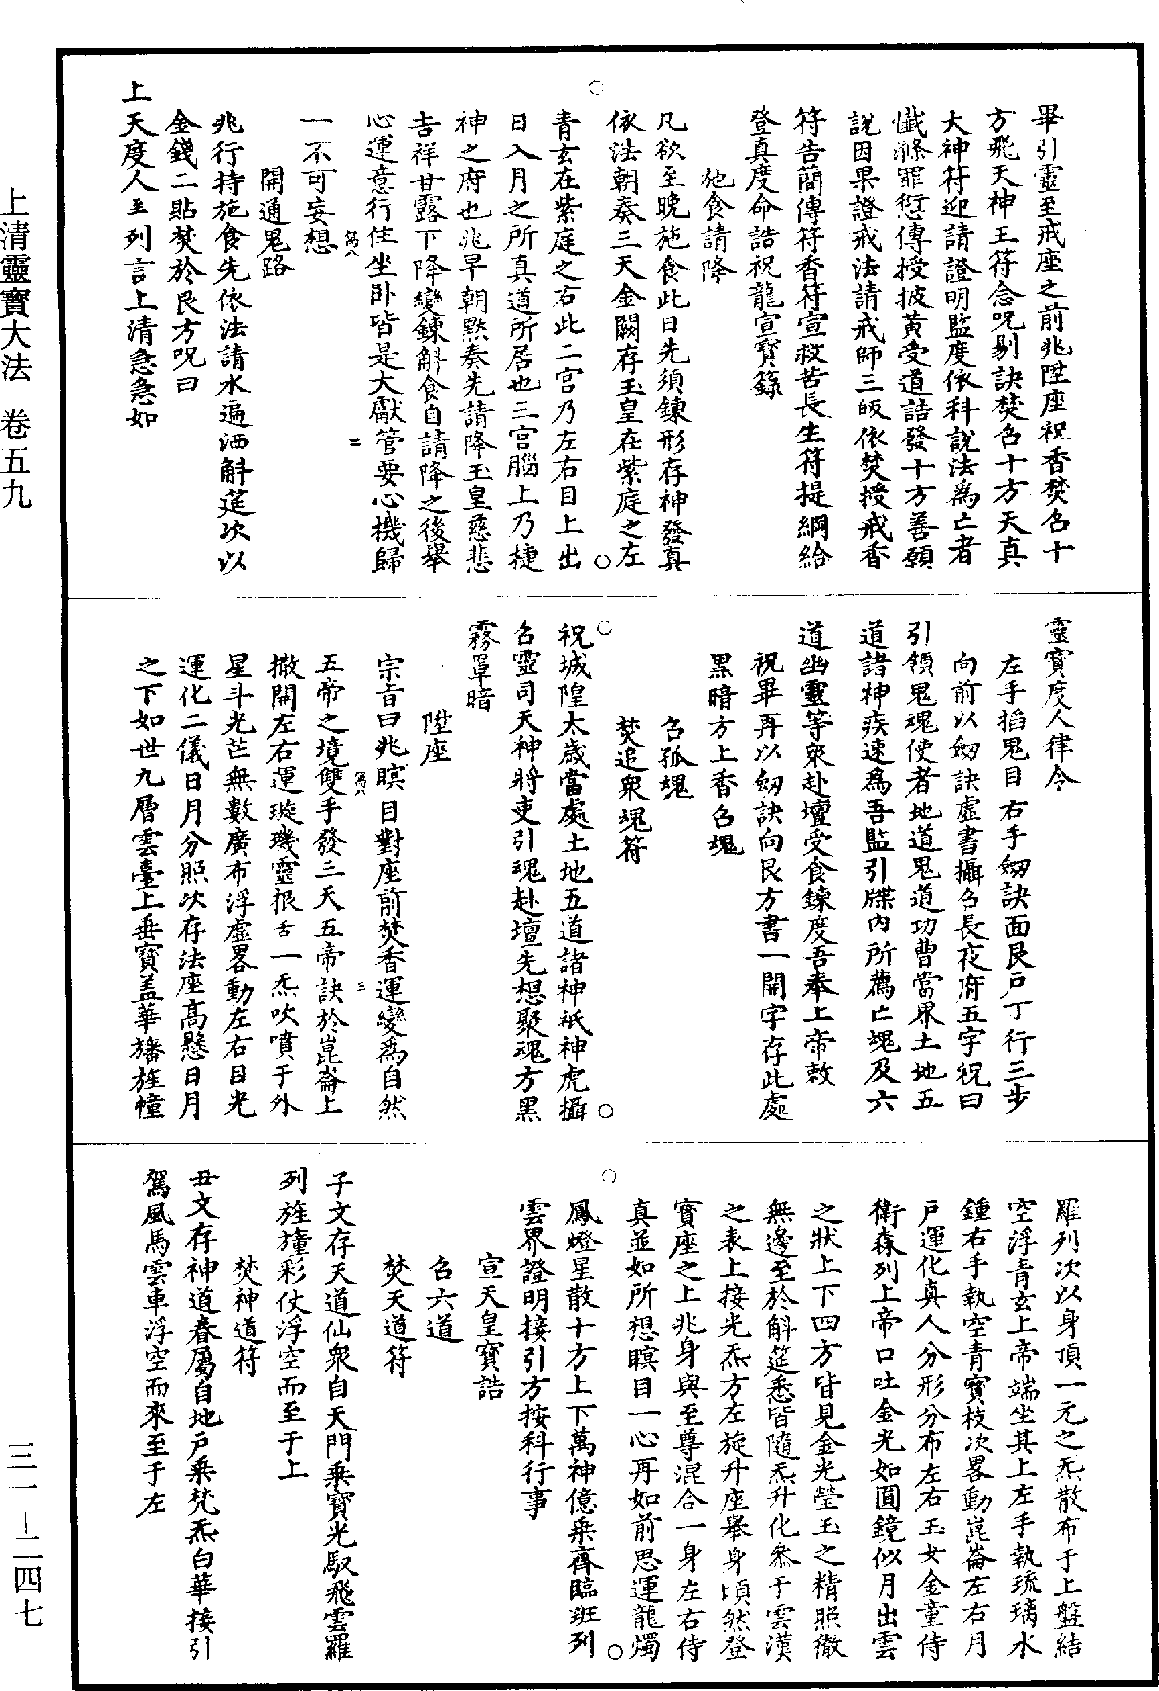 畢引靈至戒座之前兆陞座祝香焚召十
方飛天神王符念呪剔訣焚召十方天真
大神符迎請證明監度依科說法為亡者
懺滌罪愆傳授披黃受道誥發十方善願
說因果證戒法請戒師三皈依焚授戒香
符告簡傳符香符宣救苦長生符提綱給
登真度命誥祝龍宣寶籙
施食請降
凡欲至晚施食此日先須鍊形存神發真
依法朝奏三天金闕存玉皇在紫庭之左
青玄在紫庭之右此二宮乃左右目上出
日入月之所真道所居也三宮腦上乃捷
神之府也兆早朝默奏先請降玉皇慈悲
吉祥甘露下降變鍊斛食自請降之後舉
心運意行住坐卧皆是大獻管要心機歸
一不可妄想
開通鬼路
兆行持施食先依法請水遍洒斛筵次以
金錢二貼焚於艮方呪曰
上天度人至列言上清急急如
靈寶度人律令
左手掐鬼目右手劒訣面艮戶丁行三步
向前以劒訣虛書攝召長夜府五字祝曰
引領鬼魂使者地道鬼道功曹當界土地五
道諸神疾速為吾監引牒內所薦亡魂及六
道幽靈等衆赴壇受食鍊度吾奉上帝敕
祝畢再以劒訣向艮方書一開字存此處
黑暗方上香召魂
召孤魂
焚追衆魂符
祝城隍太歲當處土地五道諸神祇神虎攝
召靈司天神將吏引魂赴壇先想聚魂方黑
霧罩暗
陞座
宗旨曰兆瞑目對座前焚香運變為自然
五帝之境雙手發三天五帝訣於崑崙上
撒開左右運璇璣靈根舌一炁吹噴于外
星斗光芒無數廣布浮虛畧動左右目光
運化二儀日月分照次存法座高懸日月
之下如世九層雲臺上垂寶盖華旛旌幢
羅列次以身頂一元之炁散布于上盤結
空浮青玄上帝端坐其上左手執琉璃水
鍾右手執空青寶枝次畧動崑崙左右月
戶運化真人分形分布左右玉女金童侍
衛森列上帝口吐金光如圓鏡似月出雲
之狀上下四方皆見金光瑩玉之精照徹
無邊至於斛筵悉皆隨炁升化叅于雲漢
之表上接光炁方左旋升座舉身頃然登
寶座之上兆身與至尊混合一身左右侍
真並如所想瞑目一心再如前思運龍燭
鳳燈星散十方上下萬神億乘齊臨班列
雲界證明接引方按科行事
宣天皇寶誥
召六道
焚天道符
子文存天道仙衆自天門乘寶光馭飛雲羅
列旌幢彩仗浮空而至于上
焚神道符
丑文存神道眷屬自地戶乘梵炁白華接引
駕風馬雲車浮空而來至于左
上清靈寶大法　卷五九
三一－二四七